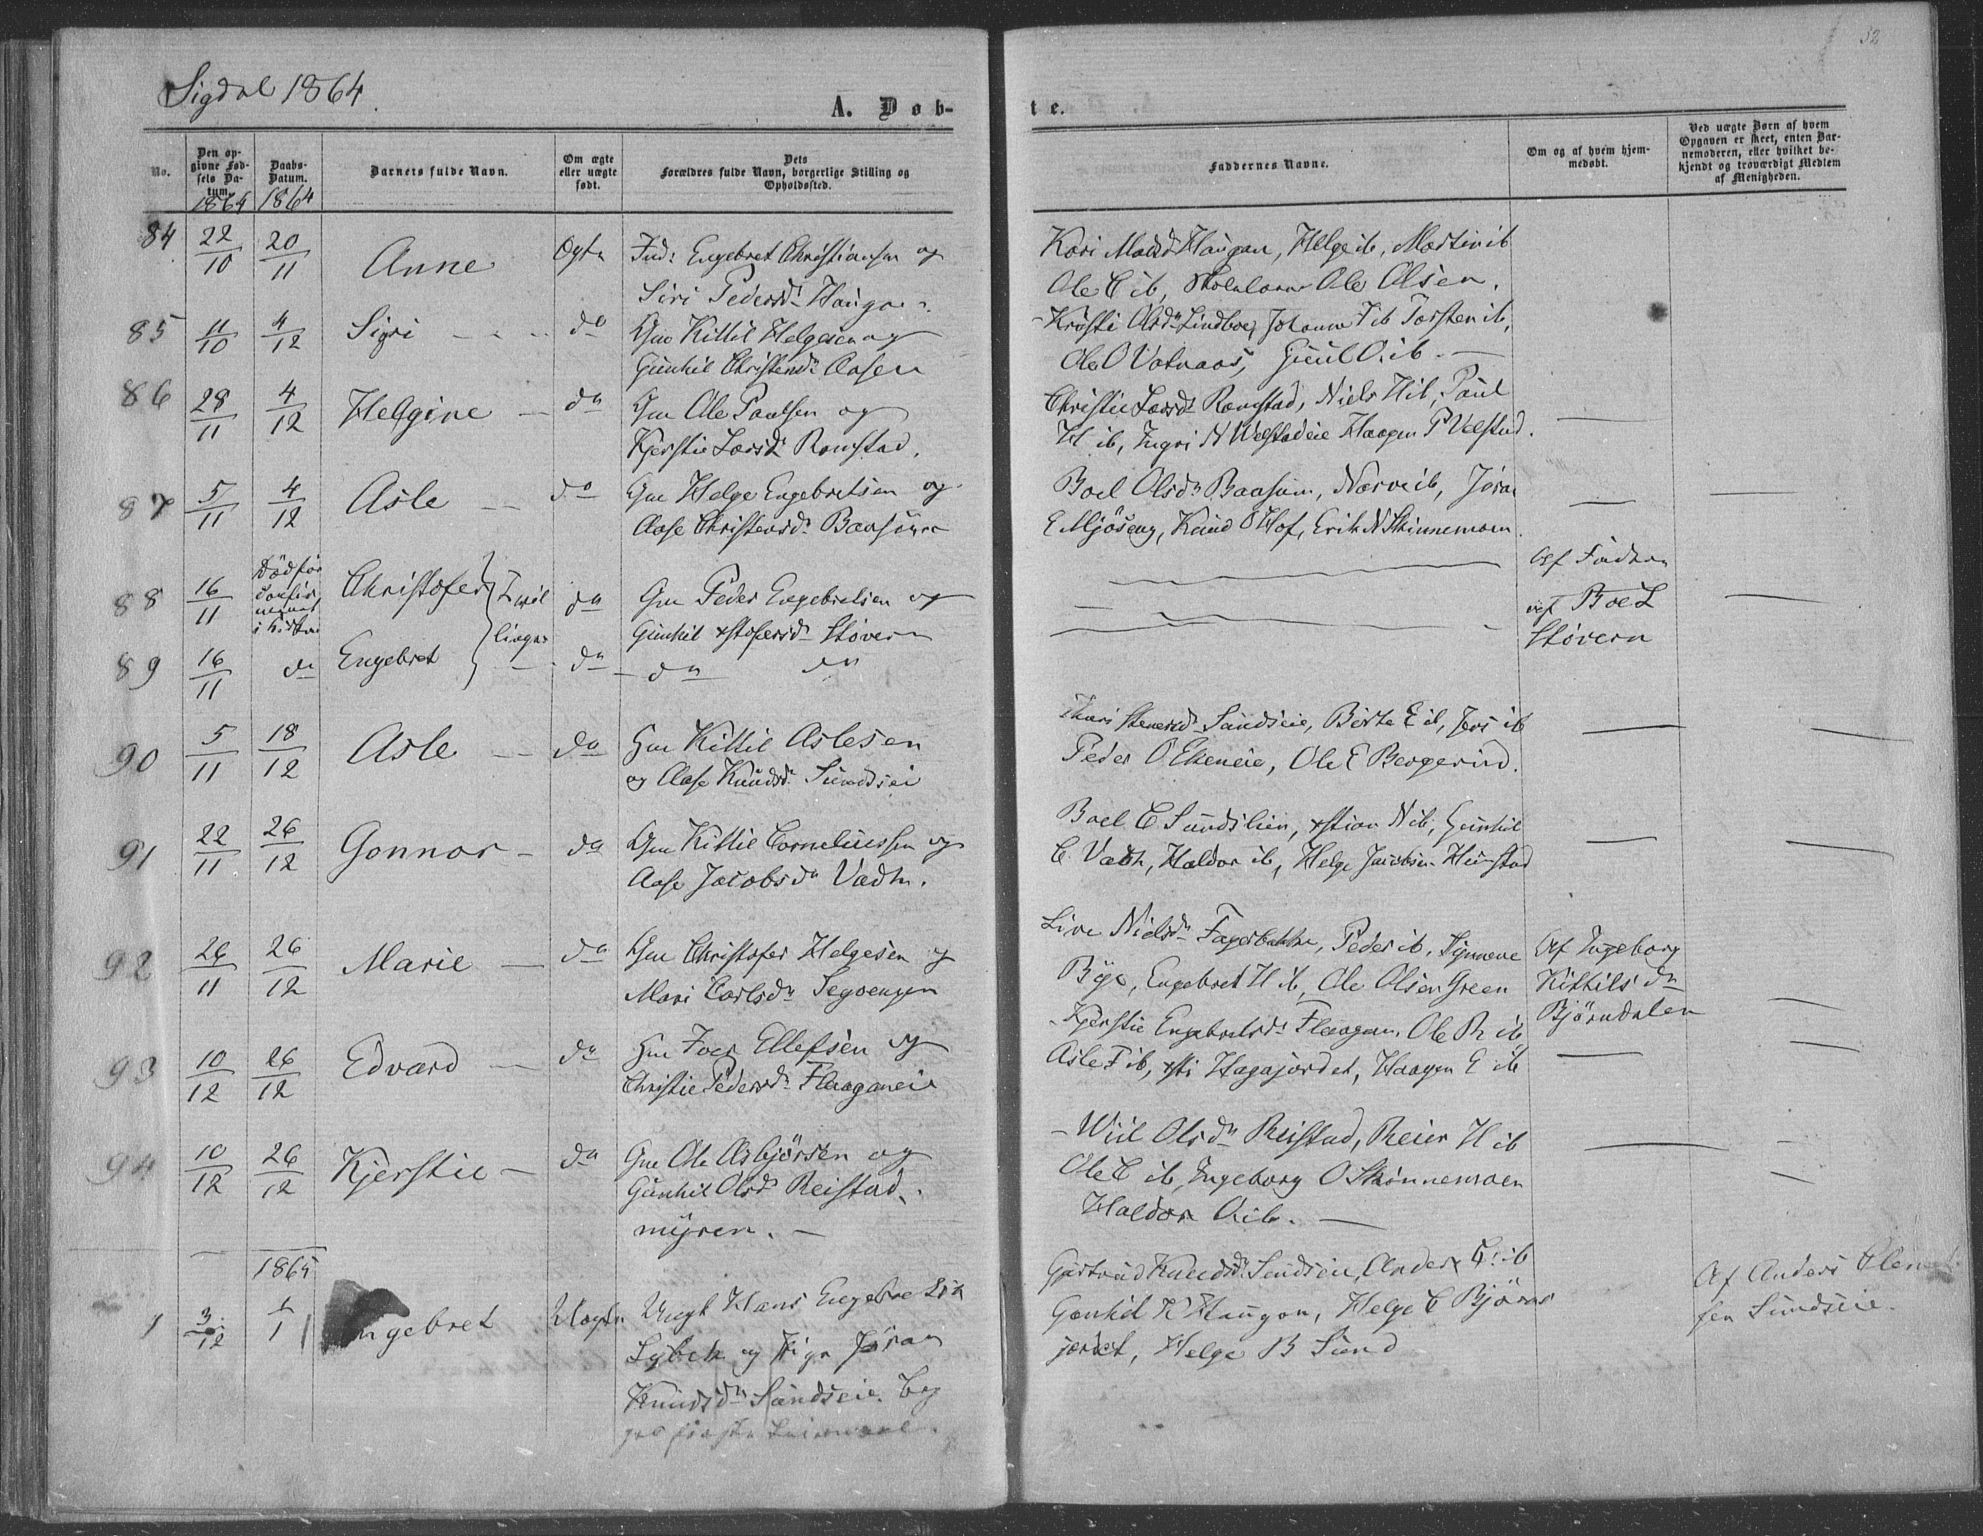 52
Sigdal 1864
A. Døb-
te.
No.
Den op-
givne Fød-
sels Da-
tum.
1864
Daabs-
Datum.
1864
Barnets fulde Navn.
Om ægte
eller uægte
født.
Dets
Forældres fulde Navn, borgerlige Stilling og
Opholdssted.
Faddernes Navne.
Om og af hvem hjem-
medøbt.
Ved uægte Børn af hvem
Opgaven er skeet, enten Bar-
nemoderen, eller hvilket be-
kjendt og troværdigt Medlem
af Menigheden.
84 22/10 20/11 Anne Ægte Ind: Engebret Christiansen og
Siri Pedersd. Haugan
Kari Haugan, Helge ib, Martin ib
Ole C ib, Ole Olsen.
85 11/10 4/12 Sigri do Gm Kittil Helgesen og
Gunhil Christensd. Aasen
Kristi Olsdn Lindboe, Johanne ib Torsten ib,
Ole O Vatnaas, Guul O ib.
86 28/11 4/12 Helgine do Gm Ole Paulsen og
Kjerstie Larsd. Ramstad.
Christie Larsd. Ramstad, Niels H ib, Paul
H ib, Ingri N Velstadeie Haagen P Velstad.
87 5/11 4/12 Asle do Gm Helge Engebretsen og
Aase Christensd. Baasum
Boel Olsdn Baasum, Narve ib, Jøran
E Mjøseng, Knud O Hof, Erik N Skinnemoen.
88 16/11 Christofer do Gm Peder Engebretsen og
Gunhil Xstofersd. Støvern
Tvil
linger
Af Fadren
Boel
Støvern
89 16/11 do Engebret do do do
90 5/11 18/12 Asle do Gm Kittil Aslesen
og Aase Knudsd. Sundseie
Stenersd. Sundseie, Birte E ib, ib
Peder O Ekeneie, Ole E Bergerud.
91 22/11 26/12 Gonnor do Gm Kittil Corneliussen og
Aase Jacobsdn Vadhn.
Boel C Sundslien, Xstian N ib, Gunhil
C. Haldor ib, Helge Jacobsen
92 26/11 26/12 Marie do Gm Christofer Helgesen og
Mari Carlsdn
Live Nielsdn Fagerbakke, Peder ib,
Bye, Engebret H ib, Ole Olsen Green
Af Ingeborg
Kittils dn
Bjørndalen
93 10/12 26/12 Edvard do Gm Iver Ellefsen og
Christie Pedersd. Flaaganeie
Kjerstie Engebretsd. Flaagan, Ole R ib
Asle F ib, Xsti Hagajordet, Haagen E ib
94 10/12 26/12 Kjerstie do Gm Ole Asbjørsen og
Gunhil Olsd. Reistad
myren.
Olsdn Reistad, Reier H ib
Ole C ib, Ingeborg O Skinnemoen
Haldor O ib.
1865
1 3/12 1/1 Engebret Uægte Ungk Hans Engebretsen
og Pige Jøran
Knudsdn Sundseie. Beg
Gjertrud Knudsd. Sundseie, Anders C. ib
Gunhil K Haugan, Helge C Bjørns
jordet, Helge B Sund
Af Anders
sen Sundseie.